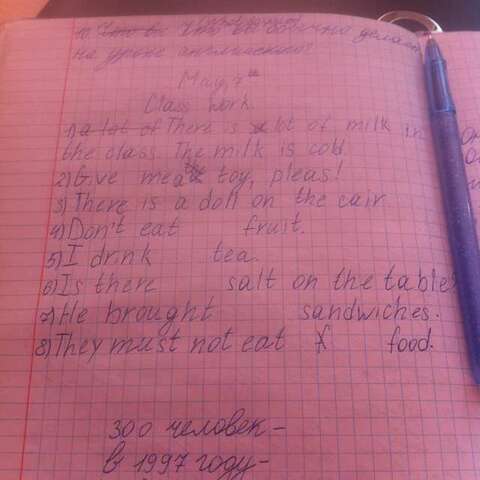 10. Что вы обычно делаете
на уроке английского?
May, 7th
Class work.
1) a lot of There is a lot of milk in
the class. The milk is cold.
2) Give me a toy, pleas!
3) There is a doll on the cair.
4) Don't eat fruit.
5) I drink tea.
6) Is there salt on the table?
7) He brought sandwiches.
8) They must not eat food.
300 человек –
в 1997 году –